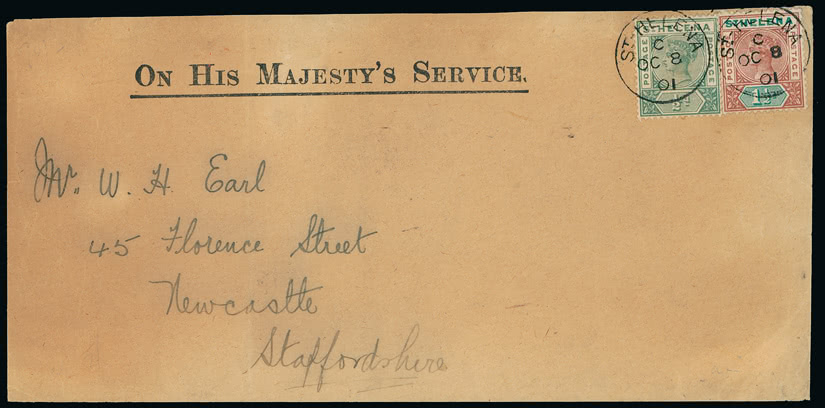 ON HIS MAJESTY'S SERVICE.
ST HELENA
POSTAGE
POSTAGE
½d
ST HELENA
C
OC 8
01
ST HELENA
POSTAGE
POSTAGE
1½d
ST HELENA
C
OC 8
01
Mr. W. H. Earl
45 Florence Street
Newcastle
Staffordshire